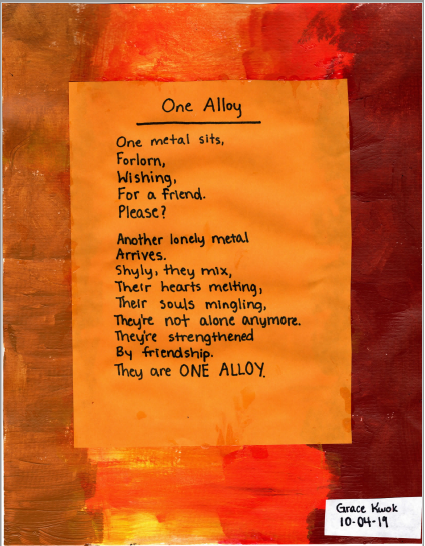 One Alloy
One metal sits,
Forlorn,
Wishing,
For a friend.
Please?
Another lonely metal
Arrives.
Shyly, they mix,
Their hearts melting,
Their souls mingling,
They're not alone anymore.
They're strengthened
By friendship.
They are ONE ALLOY.
Grace Kwok
10-04-19